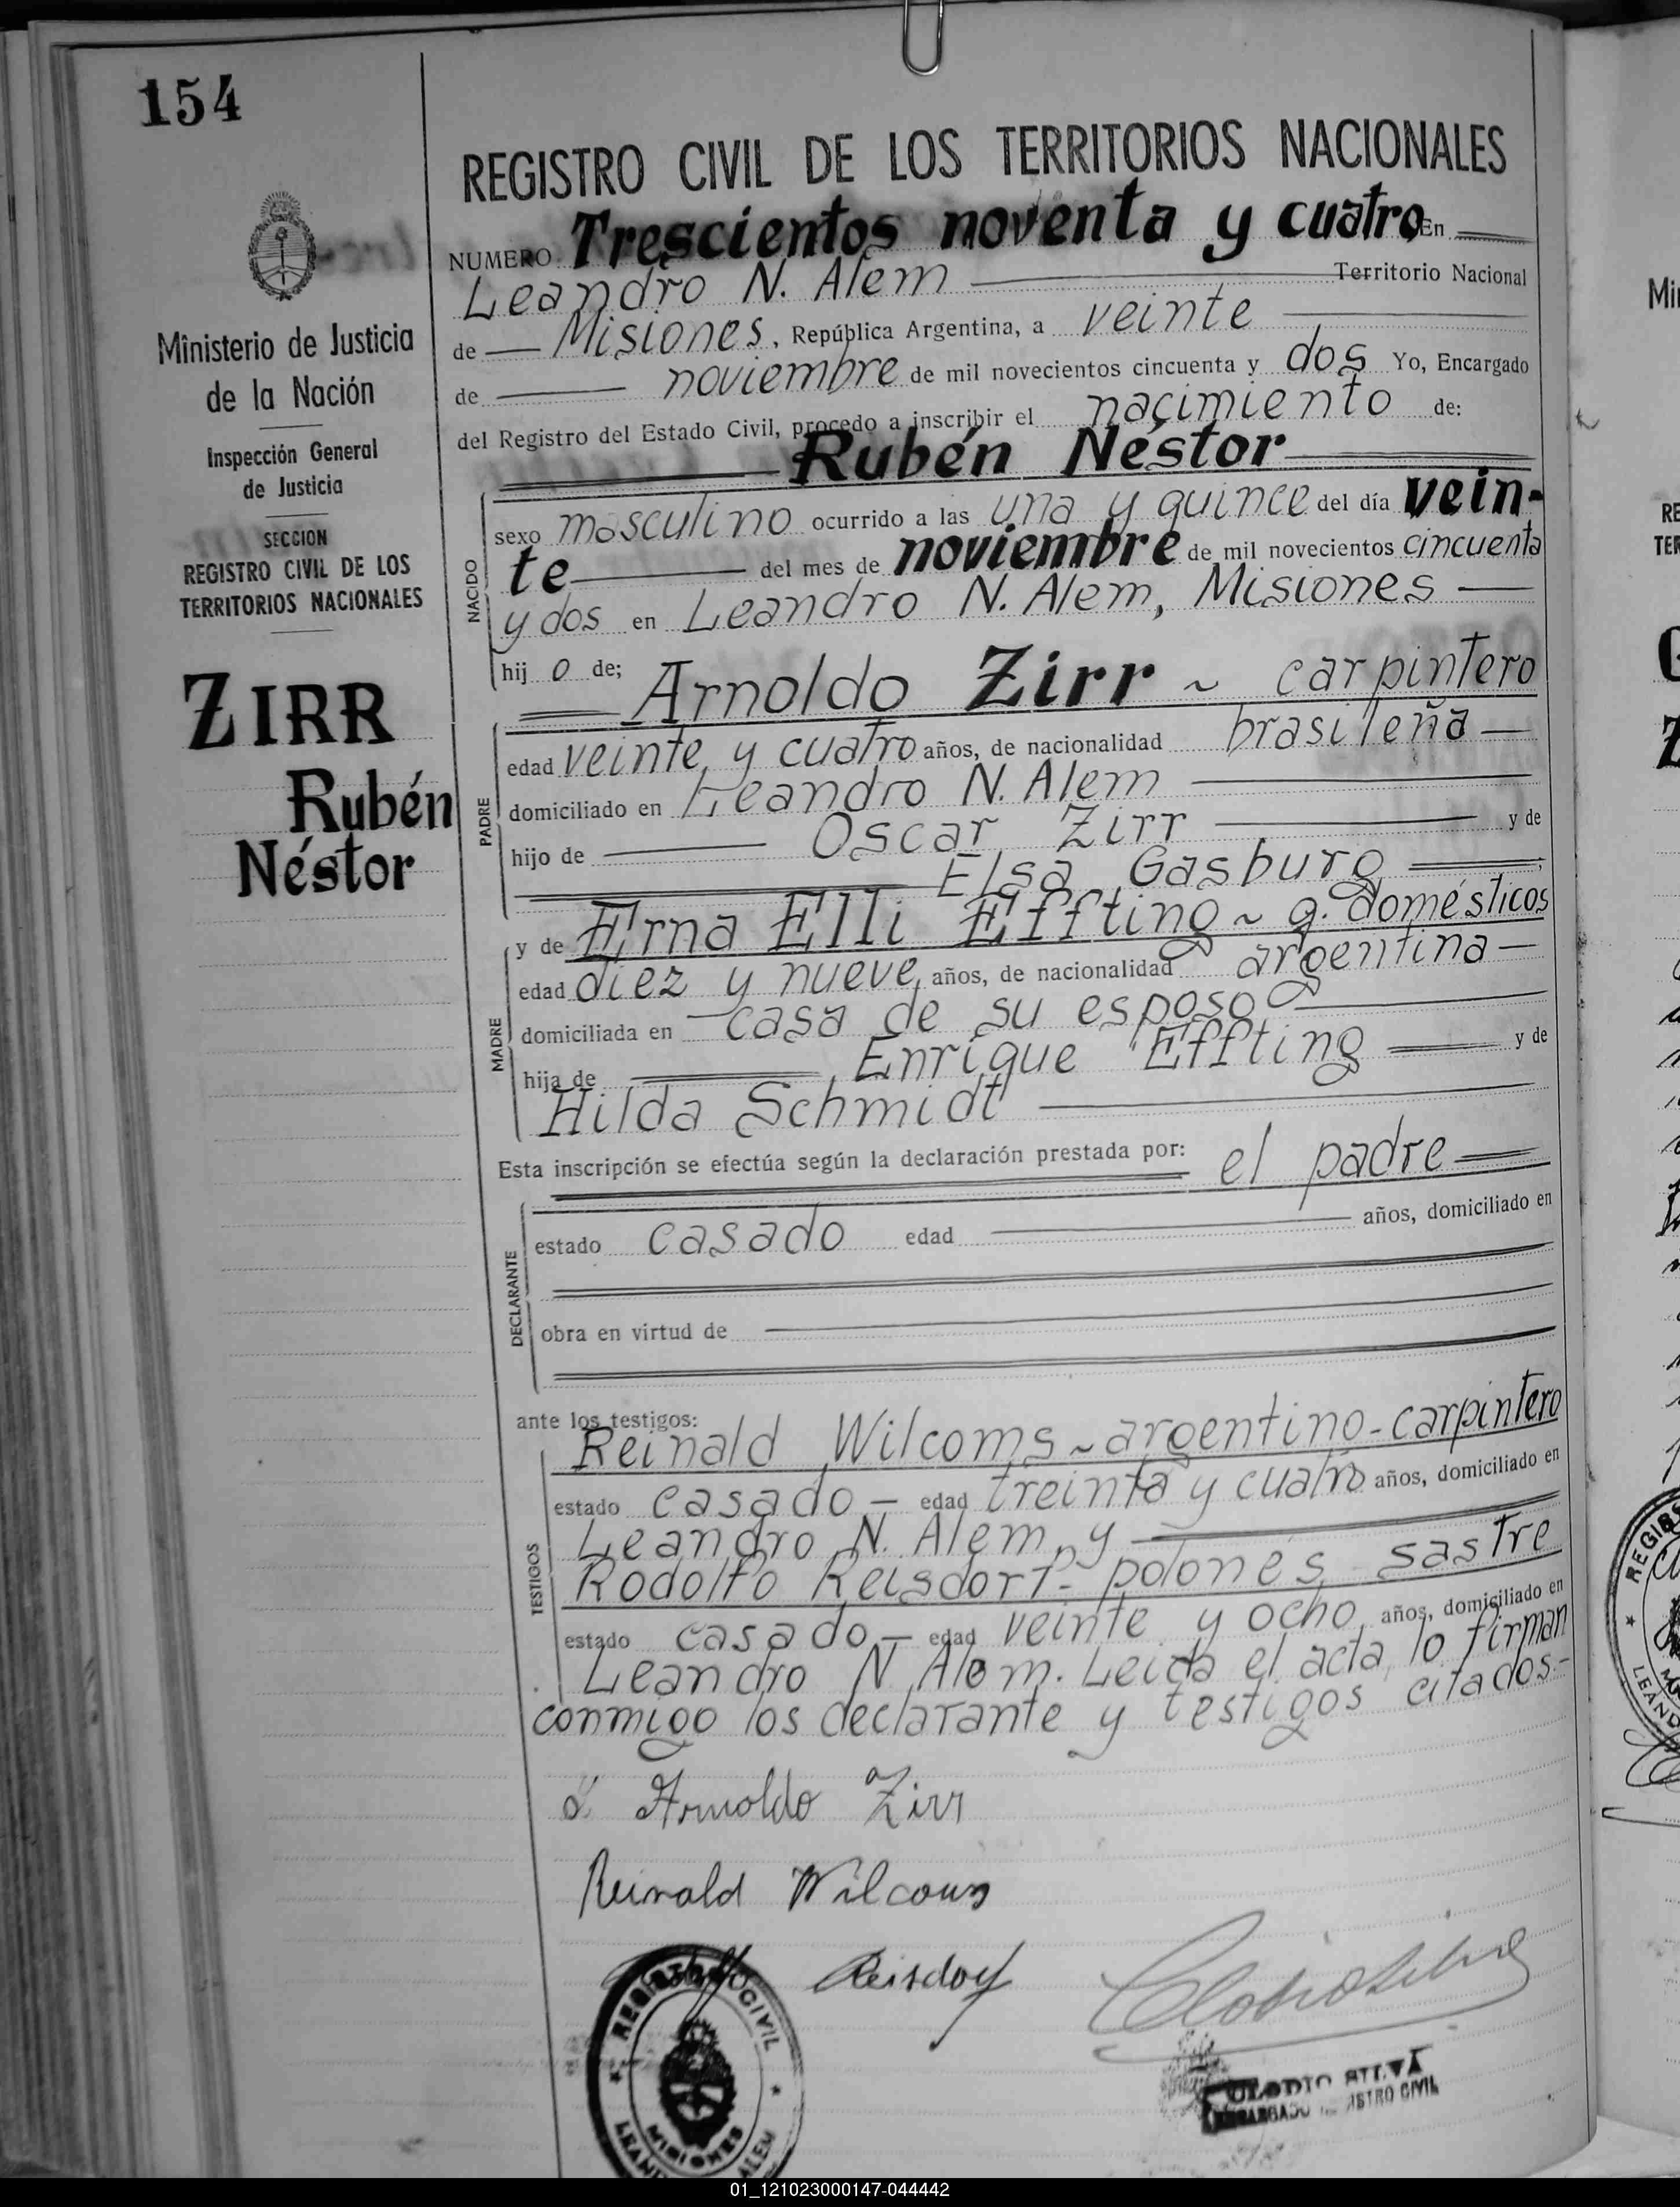 154
REGISTRO CIVIL DE LOS TERRITORIOS NACIONALES
NUMERO Trescientos noventa y cuatro En
Leandro N. Alem Territorio Nacional
de Misiones, República Argentina, a veinte
de noviembre de mil novecientos cincuenta y dos Yo, Encargado
del Registro del Estado Civil, procedo a inscribir el nacimiento de:
Rubén Néstor
NACIDO
sexo masculino ocurrido a las una y quince del día vein-
te del mes de noviembre de mil novecientos cincuenta
y dos en Leandro N. Alem, Misiones
hij o de;
Arnoldo Zirr ~ carpintero
PADRE
edad veinte y cuatro años, de nacionalidad brasileña
domiciliado en Leandro N. Alem
hijo de Oscar Zirr y de
Elsa Gasburg
y de Erna Elli Effting ~ q. domésticos
MADRE
edad diez y nueve años, de nacionalidad argentina
domiciliada en casa de su esposo
hija de Enrique Effting y de
Hilda Schmidt
Esta inscripción se efectúa según la declaración prestada por: el padre
DECLARANTE
estado casado edad años, domiciliado en
obra en virtud de
ante los testigos:
Reinald Wilcoms ~ argentino - carpintero
TESTIGOS
estado casado - edad treinta y cuatro años, domiciliado en
Leandro N. Alem y
Rodolfo Reisdorf - polonés sastre
estado casado - edad veinte y ocho años, domiciliado en
Leandro N Alem. Leida el acta lo firman
conmigo los declarante y testigos citados.-
Arnoldo Zirr
Reinald Wilcoms
Reisdorf
REGISTRO CIVIL
MISIONES
LEANDRO ALEM
CLODIO SILVA
ENCARGADO REGISTRO CIVIL
Ministerio de Justicia
de la Nación
Inspección General
de Justicia
SECCION
REGISTRO CIVIL DE LOS
TERRITORIOS NACIONALES
ZIRR
Rubén
Néstor
01_121023000147-044442